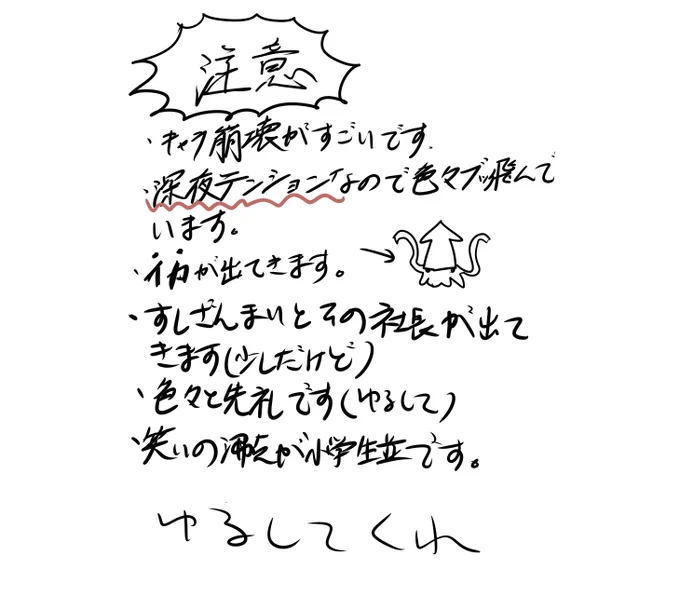 注意
・キャラ崩壊がすごいです.
・深夜テンションなので色々ブッ飛んで
います。
・イカが出てきます。
・すしざんまいとその社長が出て
きます(少しだけど)
・色々と失礼です(ゆるして)
・笑いの沸点が小学生並です。
ゆるしてくれ